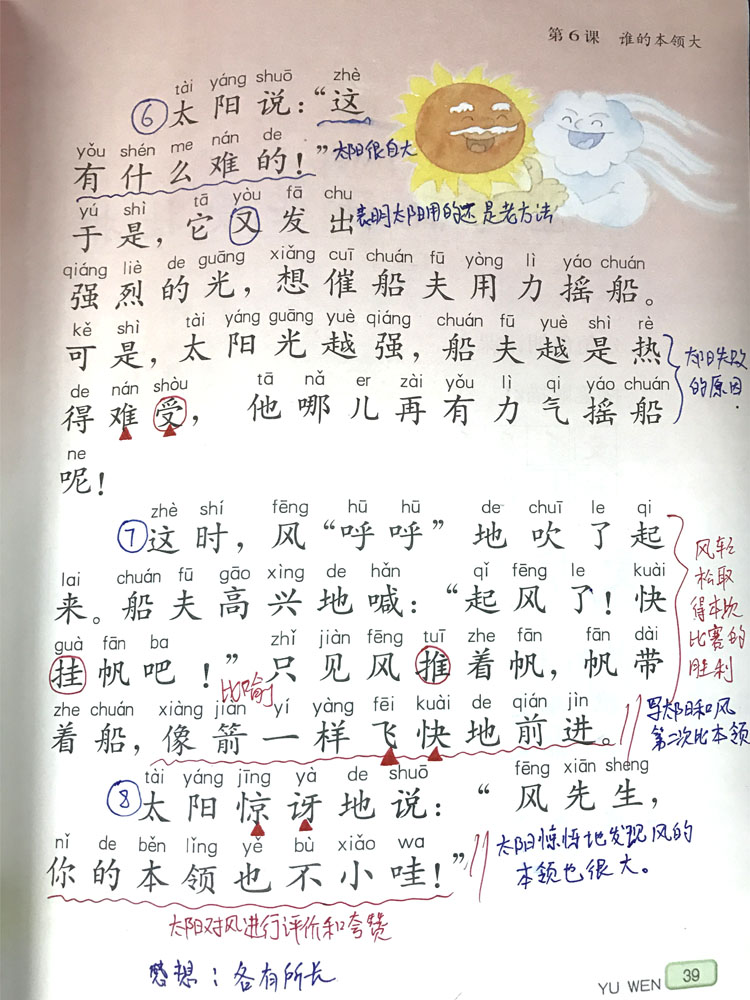 第6课 谁的本领大
tài yáng shuō zhè
⑥太阳说：“这
yǒu shén me nán de
有什么难的！”
太阳很自大
yú shì tā yòu fā chu
于是，它又发出
表明太阳用的还是老方法
qiáng liè de guāng xiǎng cuī chuán fū yòng lì yáo chuán
强烈的光，想催船夫用力摇船。
kě shì tài yáng guāng yuè qiáng chuán fū yuè shì rè
可是，太阳光越强，船夫越是热
de nán shòu tā nǎ er zài yǒu lì qi yáo chuán
得难受，他哪儿再有力气摇船
ne
呢！
太阳失败
的原因.
zhè shí fēng hū hū de chuī le qi
⑦这时，风“呼呼”地吹了起
lai chuán fū gāo xìng de hǎn qǐ fēng le kuài
来。船夫高兴地喊：“起风了！快
guà fān ba zhǐ jiàn fēng tuī zhe fān fān dài
挂帆吧！”只见风推着帆，帆带
比喻
zhe chuán xiàng jiàn yí yàng fēi kuài de qián jìn
着船，像箭一样飞快地前进。
风轻
松取
得本次
比赛的
胜利
写太阳和风
第二次比本领
tài yáng jīng yà de shuō fēng xiān sheng
⑧太阳惊讶地说：“风先生，
nǐ de běn lǐng yě bù xiǎo wa
你的本领也不小哇！”
太阳惊讶地发现风的
本领也很大。
太阳对风进行评价和夸赞
感想：各有所长
YU WEN 39